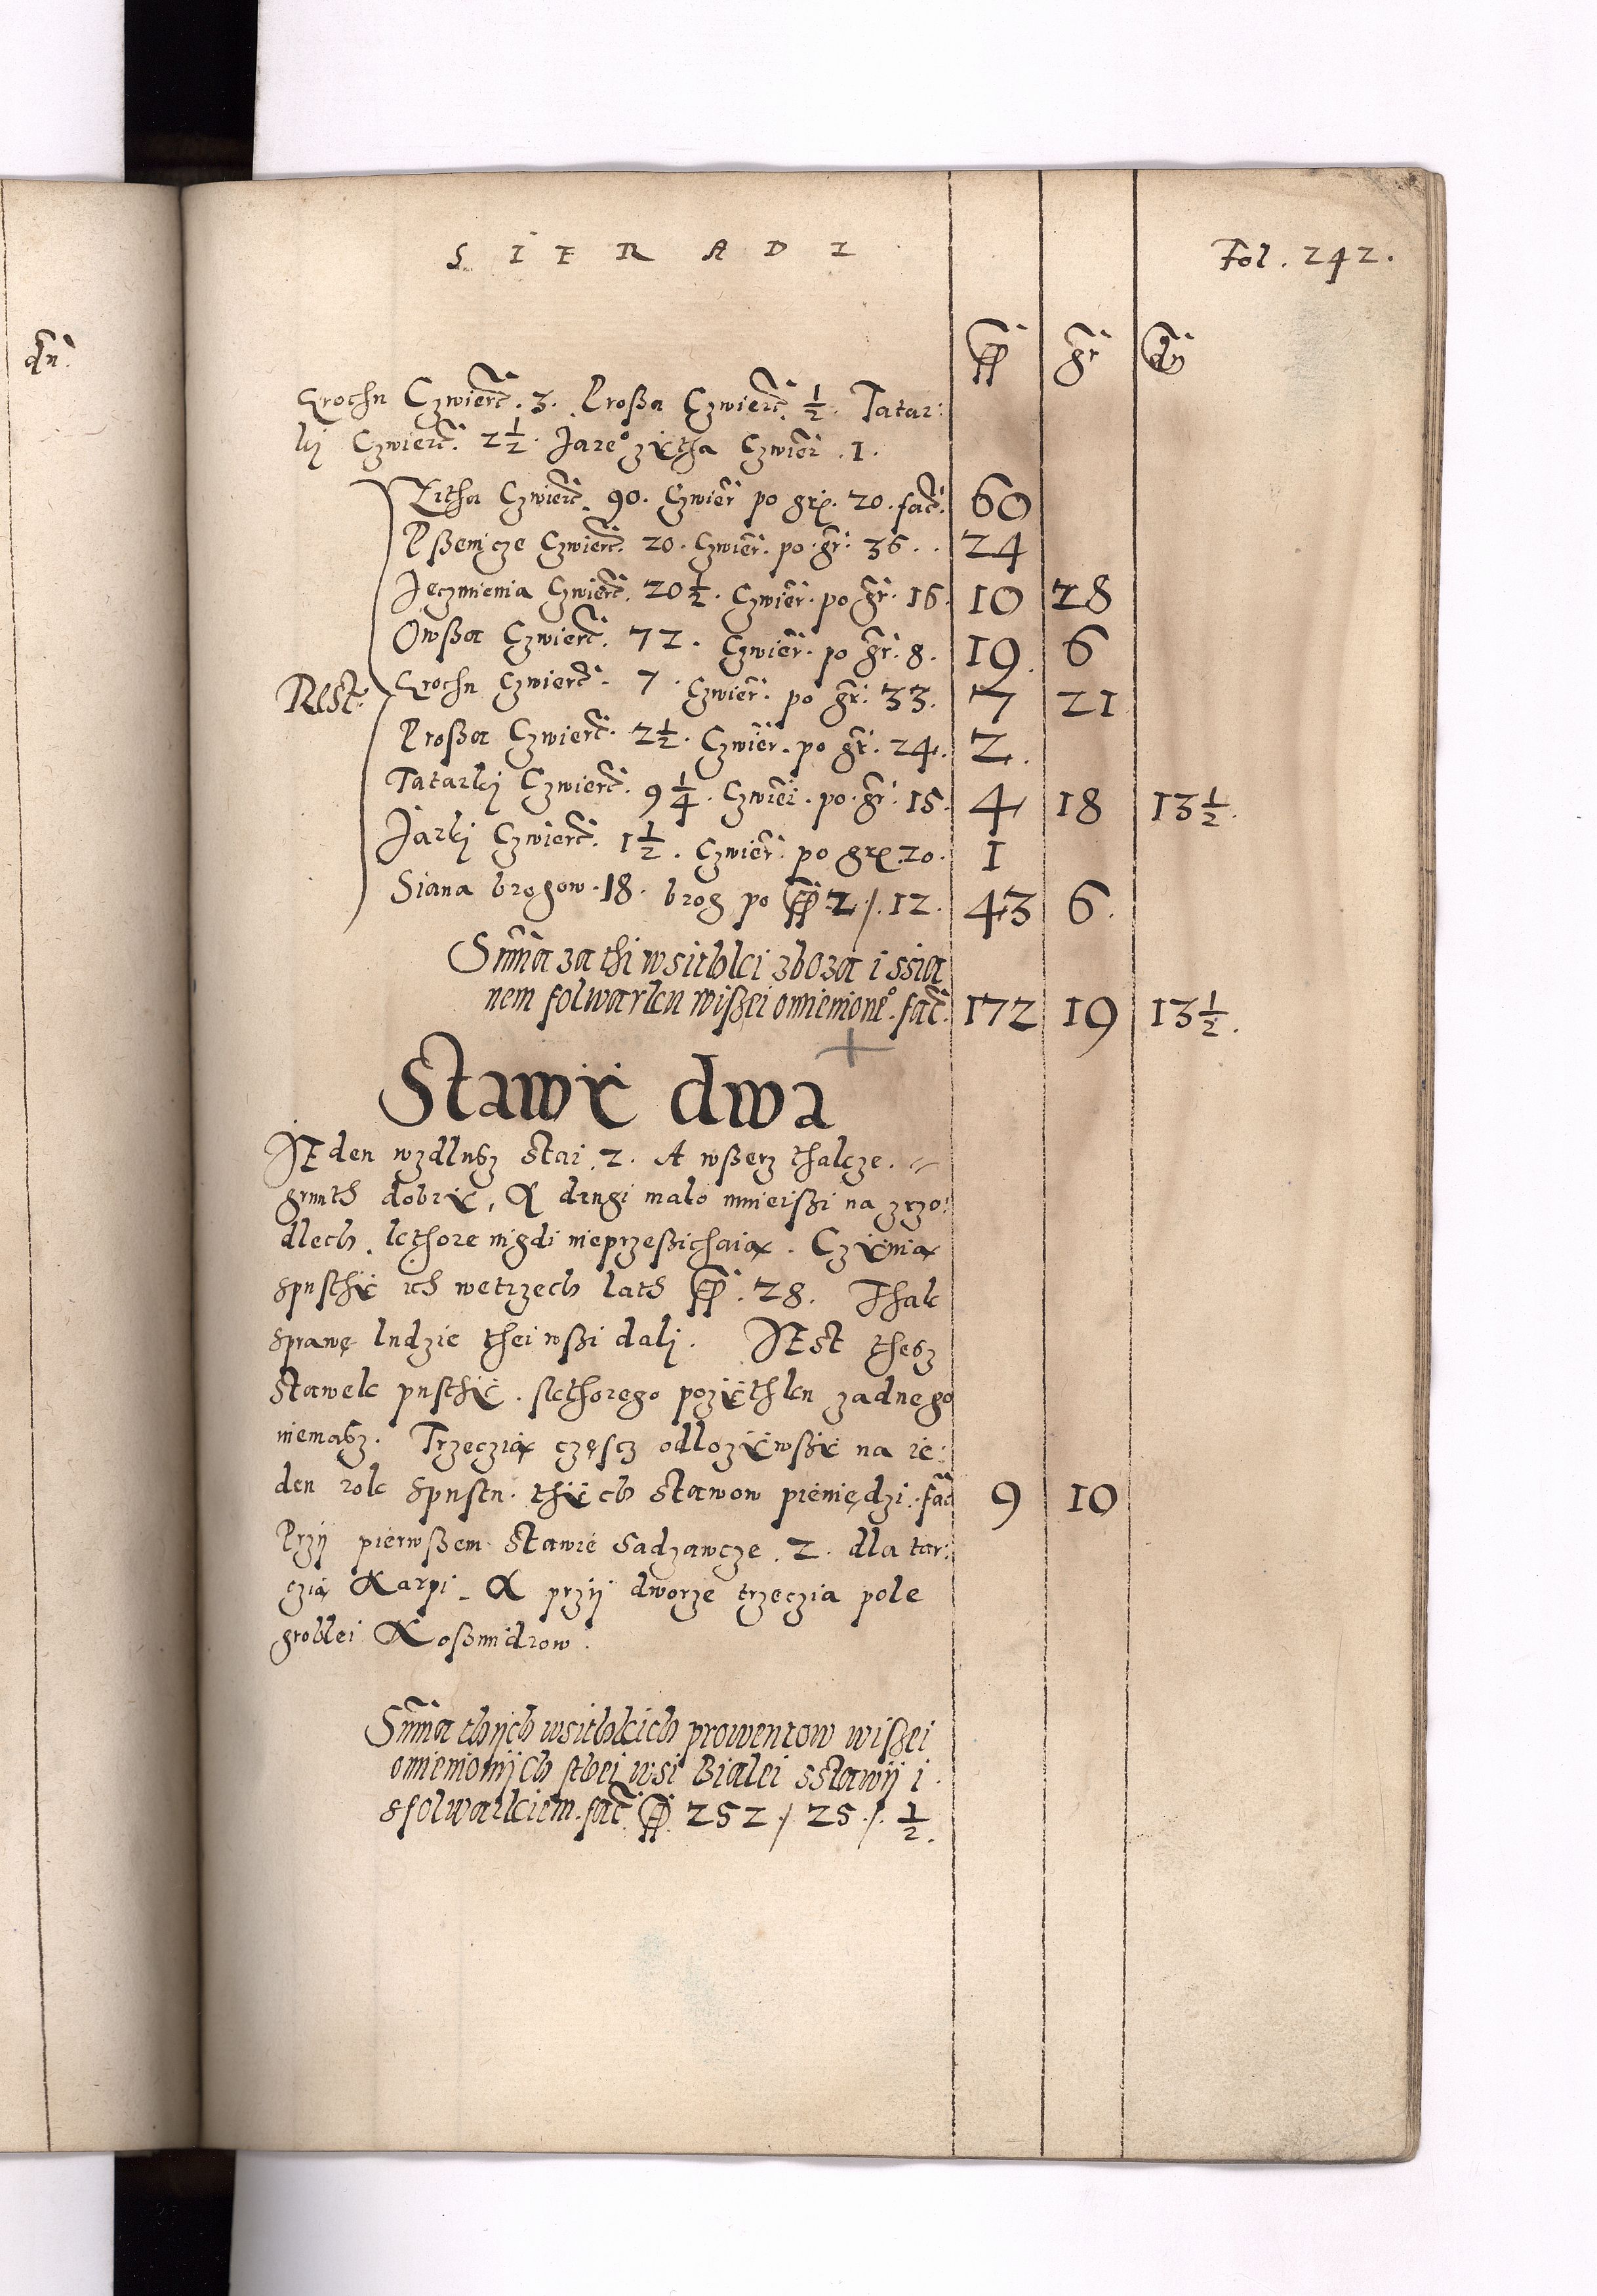 dn̄.
S I E R A D I
Fol. 242.
fl gr dn
Grochu Czwierč. 3. Proßa Czwierč. ½. Tatar:
ki Czwierč. 2½. Jare° zÿtha Czwier̄ .1.
Zitha Czwierč. 90. Czwier̄ po grx. 20. fač. 60
Pßenicze Czwierč. 20. Czwier̄. po. gr̄. 36. . 24
Jęczmienia Czwierč. 20½. Czwier̄. po gr̄. 16. 10 28
Owßa Czwierč. 72. Czwier̄. po gr̄. 8. 19. 6
Rest. Grochu Czwierč. 7. Czwier̄. po gr̄. 33. 7 21
Proßa Czwierč. 2½. Czwier̄. po gr̄. 24. 2.
Tatarki Czwierč. 9¼. Czwier̄. po. gr̄. 15. 4 18 13½.
Jarki Czwierč. 1½. Czwier̄. po grx. 20. 1
Siana brogow. 18. brog po fl 2 /. 12. 43 6.
Sum̄a za thi wsithki zboza i ssia
nem folwarku wißei omienione°. fač. 172 19 13½.
Stawÿ dwa
JEden wzdlusz Stai .2. A wßerz thakze.
grunth dobrÿ, A drugi malo mnieißi na zrzo:
dlech. kthore nigdi nieprzeßichaią. Czÿnią
spusthÿ ich wetrzech lath fl. 28. Thak
sprawę ludzie thei wßi dali. JEst thesz
Stawek pusthÿ. skthorego pozÿthku zadnego
niemasz. Trzeczią częscz odlozÿwßÿ na ie:
den rok spustu. thÿch Stawow pieniędzi. fač 9 10
Przÿ pierwßem Stawie Sadzawcze .2. dla tar:
czia Karpi. A przÿ dworze trzeczia pole
groblei Koßmidrow.
Sum̄a thÿch wsithkich prowentow wißei
omienionÿch sthei wsi Bialei sStawÿ i
sfolwarkiem. fač. fl 252 / 25 /. ½.